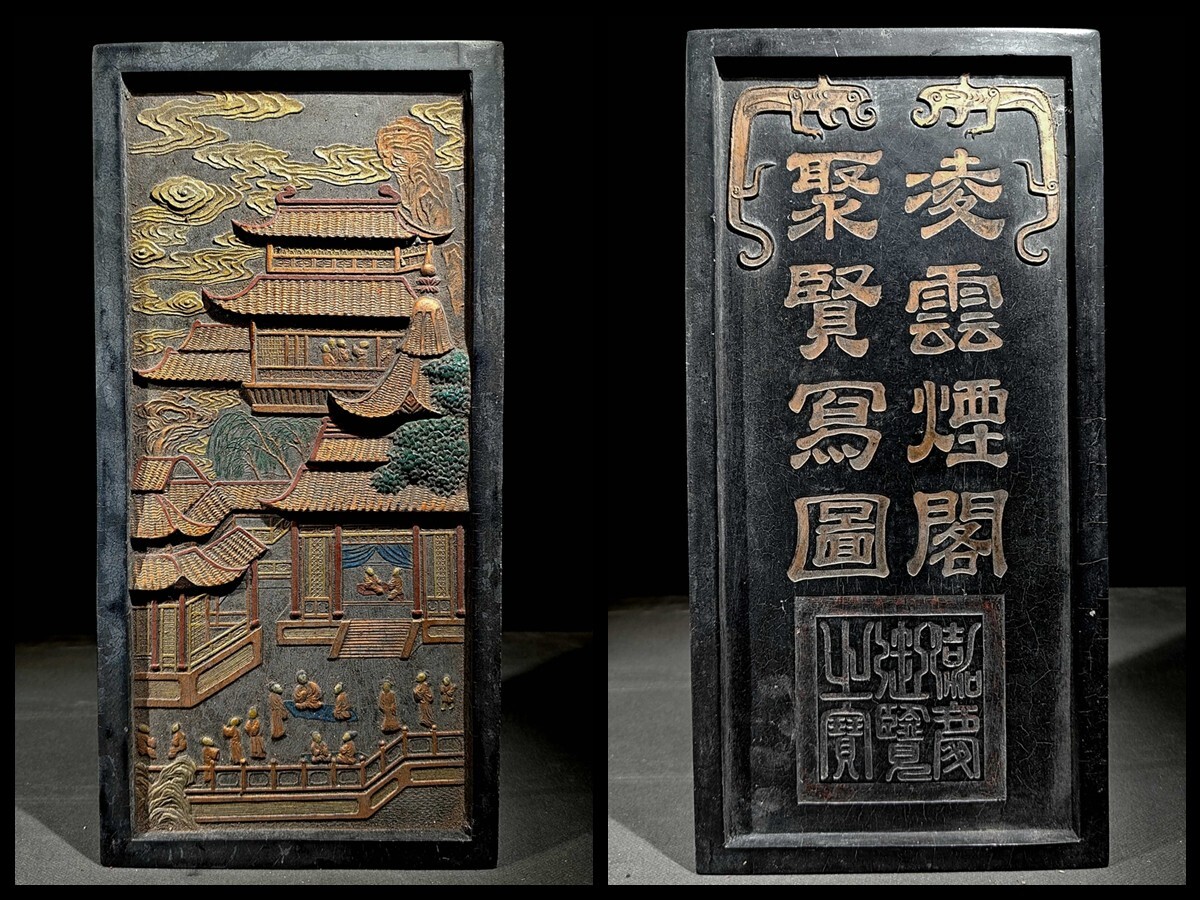 凌雲煙閣
聚賢寫圖
嘉慶
御覽
之寶